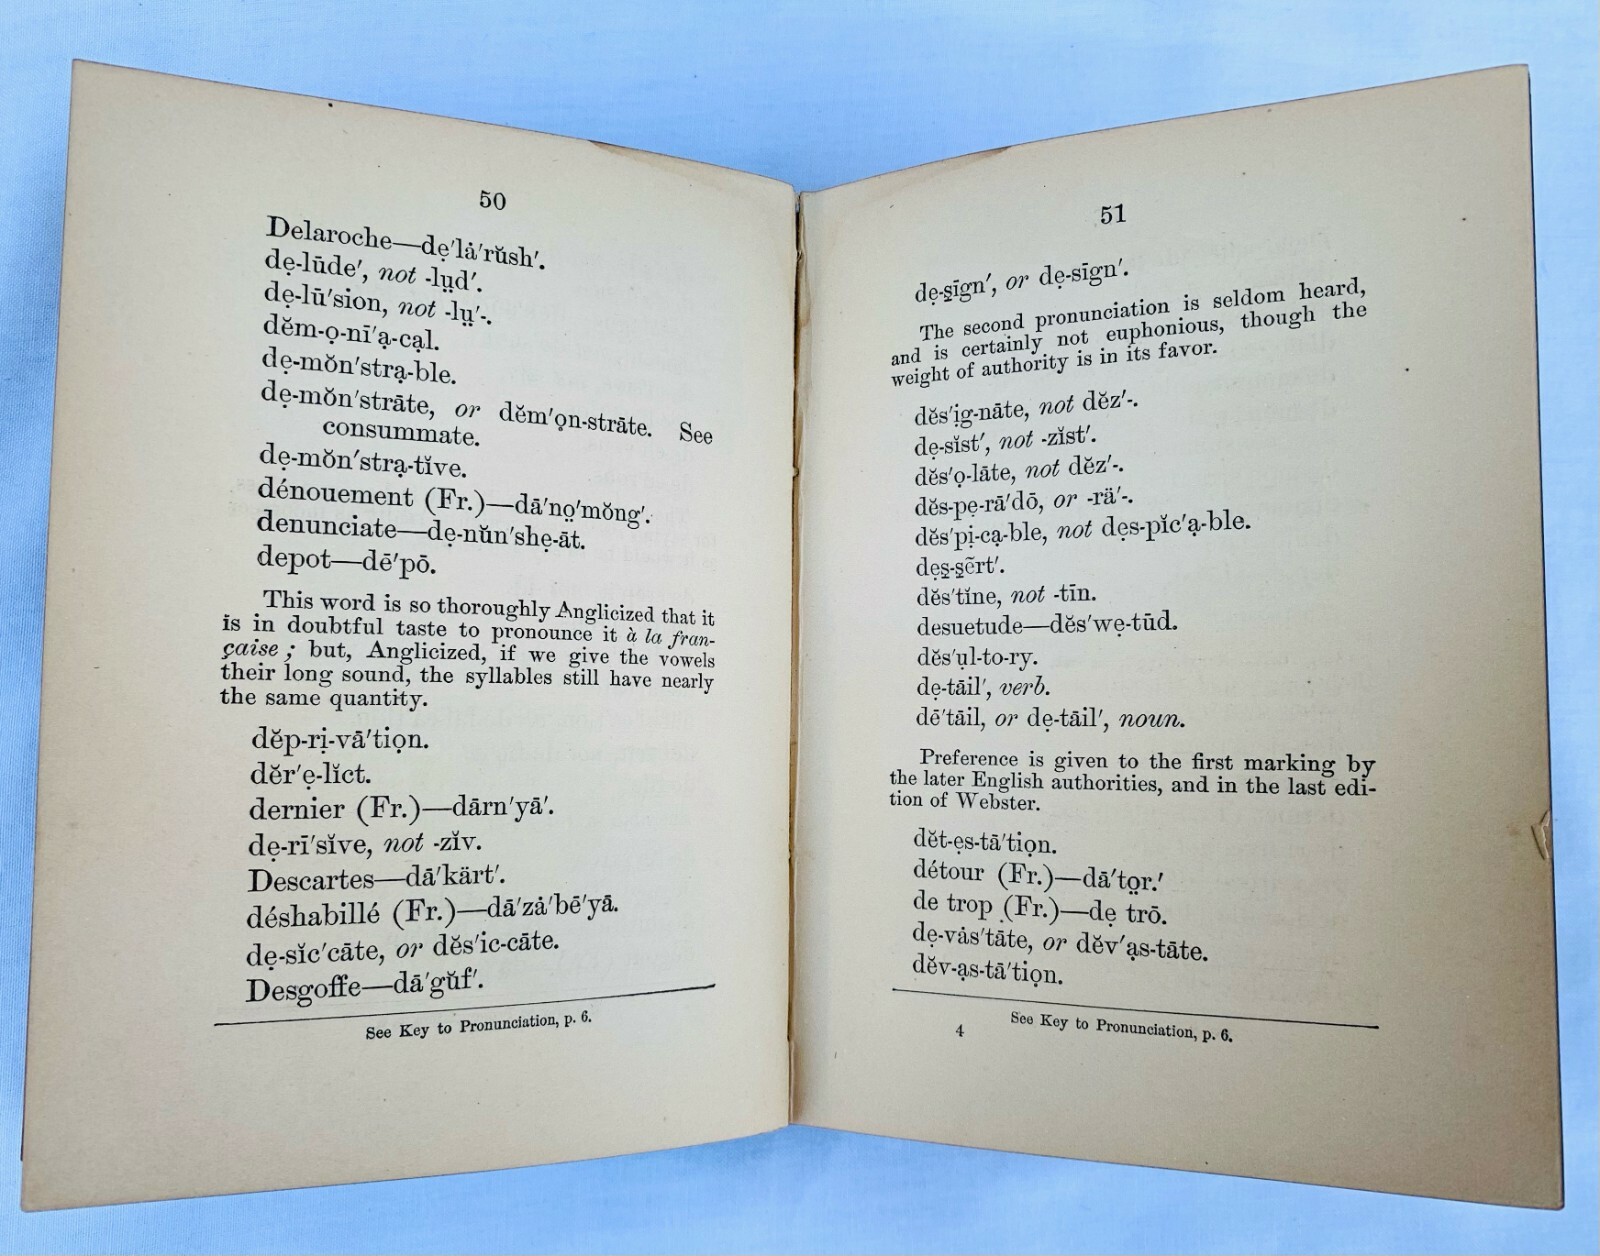 50
Delaroche—dẹ′lȧ′rŭsh′.
dẹ-lūde′, not -lṳd′.
dẹ-lū′sion, not -lṳ′-.
dĕm-ọ-nī′ạ-cạl.
dẹ-mŏn′strạ-ble.
dẹ-mŏn′strāte, or dĕm′ọn-strāte. See
consummate.
dẹ-mŏn′strạ-tĭve.
dénouement (Fr.)—dā′no̤′mŏng′.
denunciate—dẹ-nŭn′shẹ-āt.
depot—dē′pō.
This word is so thoroughly Anglicized that it
is in doubtful taste to pronounce it à la fran-
çaise; but, Anglicized, if we give the vowels
their long sound, the syllables still have nearly
the same quantity.
dĕp-rị-vā′tiọn.
dĕr′ẹ-lĭct.
dernier (Fr.)—dārn′yā′.
dẹ-rī′sĭve, not -zĭv.
Descartes—dā′kärt′.
déshabillé (Fr.)—dā′zȧ′bē′yā.
dẹ-sĭc′cāte, or dĕs′ic-cāte.
Desgoffe—dā′gŭf′.
See Key to Pronunciation, p. 6.
51
dẹ-s̱īgn′, or dẹ-sīgn′.
The second pronunciation is seldom heard,
and is certainly not euphonious, though the
weight of authority is in its favor.
dĕs′ịg-nāte, not dĕz′-.
dẹ-sĭst′, not -zĭst′.
dĕs′ọ-lāte, not dĕz′-.
dĕs-pẹ-rā′dō, or -rä′-.
dĕs′pị-cạ-ble, not dẹs-pĭc′ạ-ble.
dẹs̱-s̱ẽrt′.
dĕs′tĭne, not -tīn.
desuetude—dĕs′wẹ-tūd.
dĕs′ụl-to-ry.
dẹ-tāil′, verb.
dē′tāil, or dẹ-tāil′, noun.
Preference is given to the first marking by
the later English authorities, and in the last edi-
tion of Webster.
dĕt-ẹs-tā′tiọn.
détour (Fr.)—dā′to̤r.′
de trop (Fr.)—dẹ trō.
dẹ-vȧs′tāte, or dĕv′ạs-tāte.
dĕv-ạs-tā′tiọn.
See Key to Pronunciation, p. 6.
4